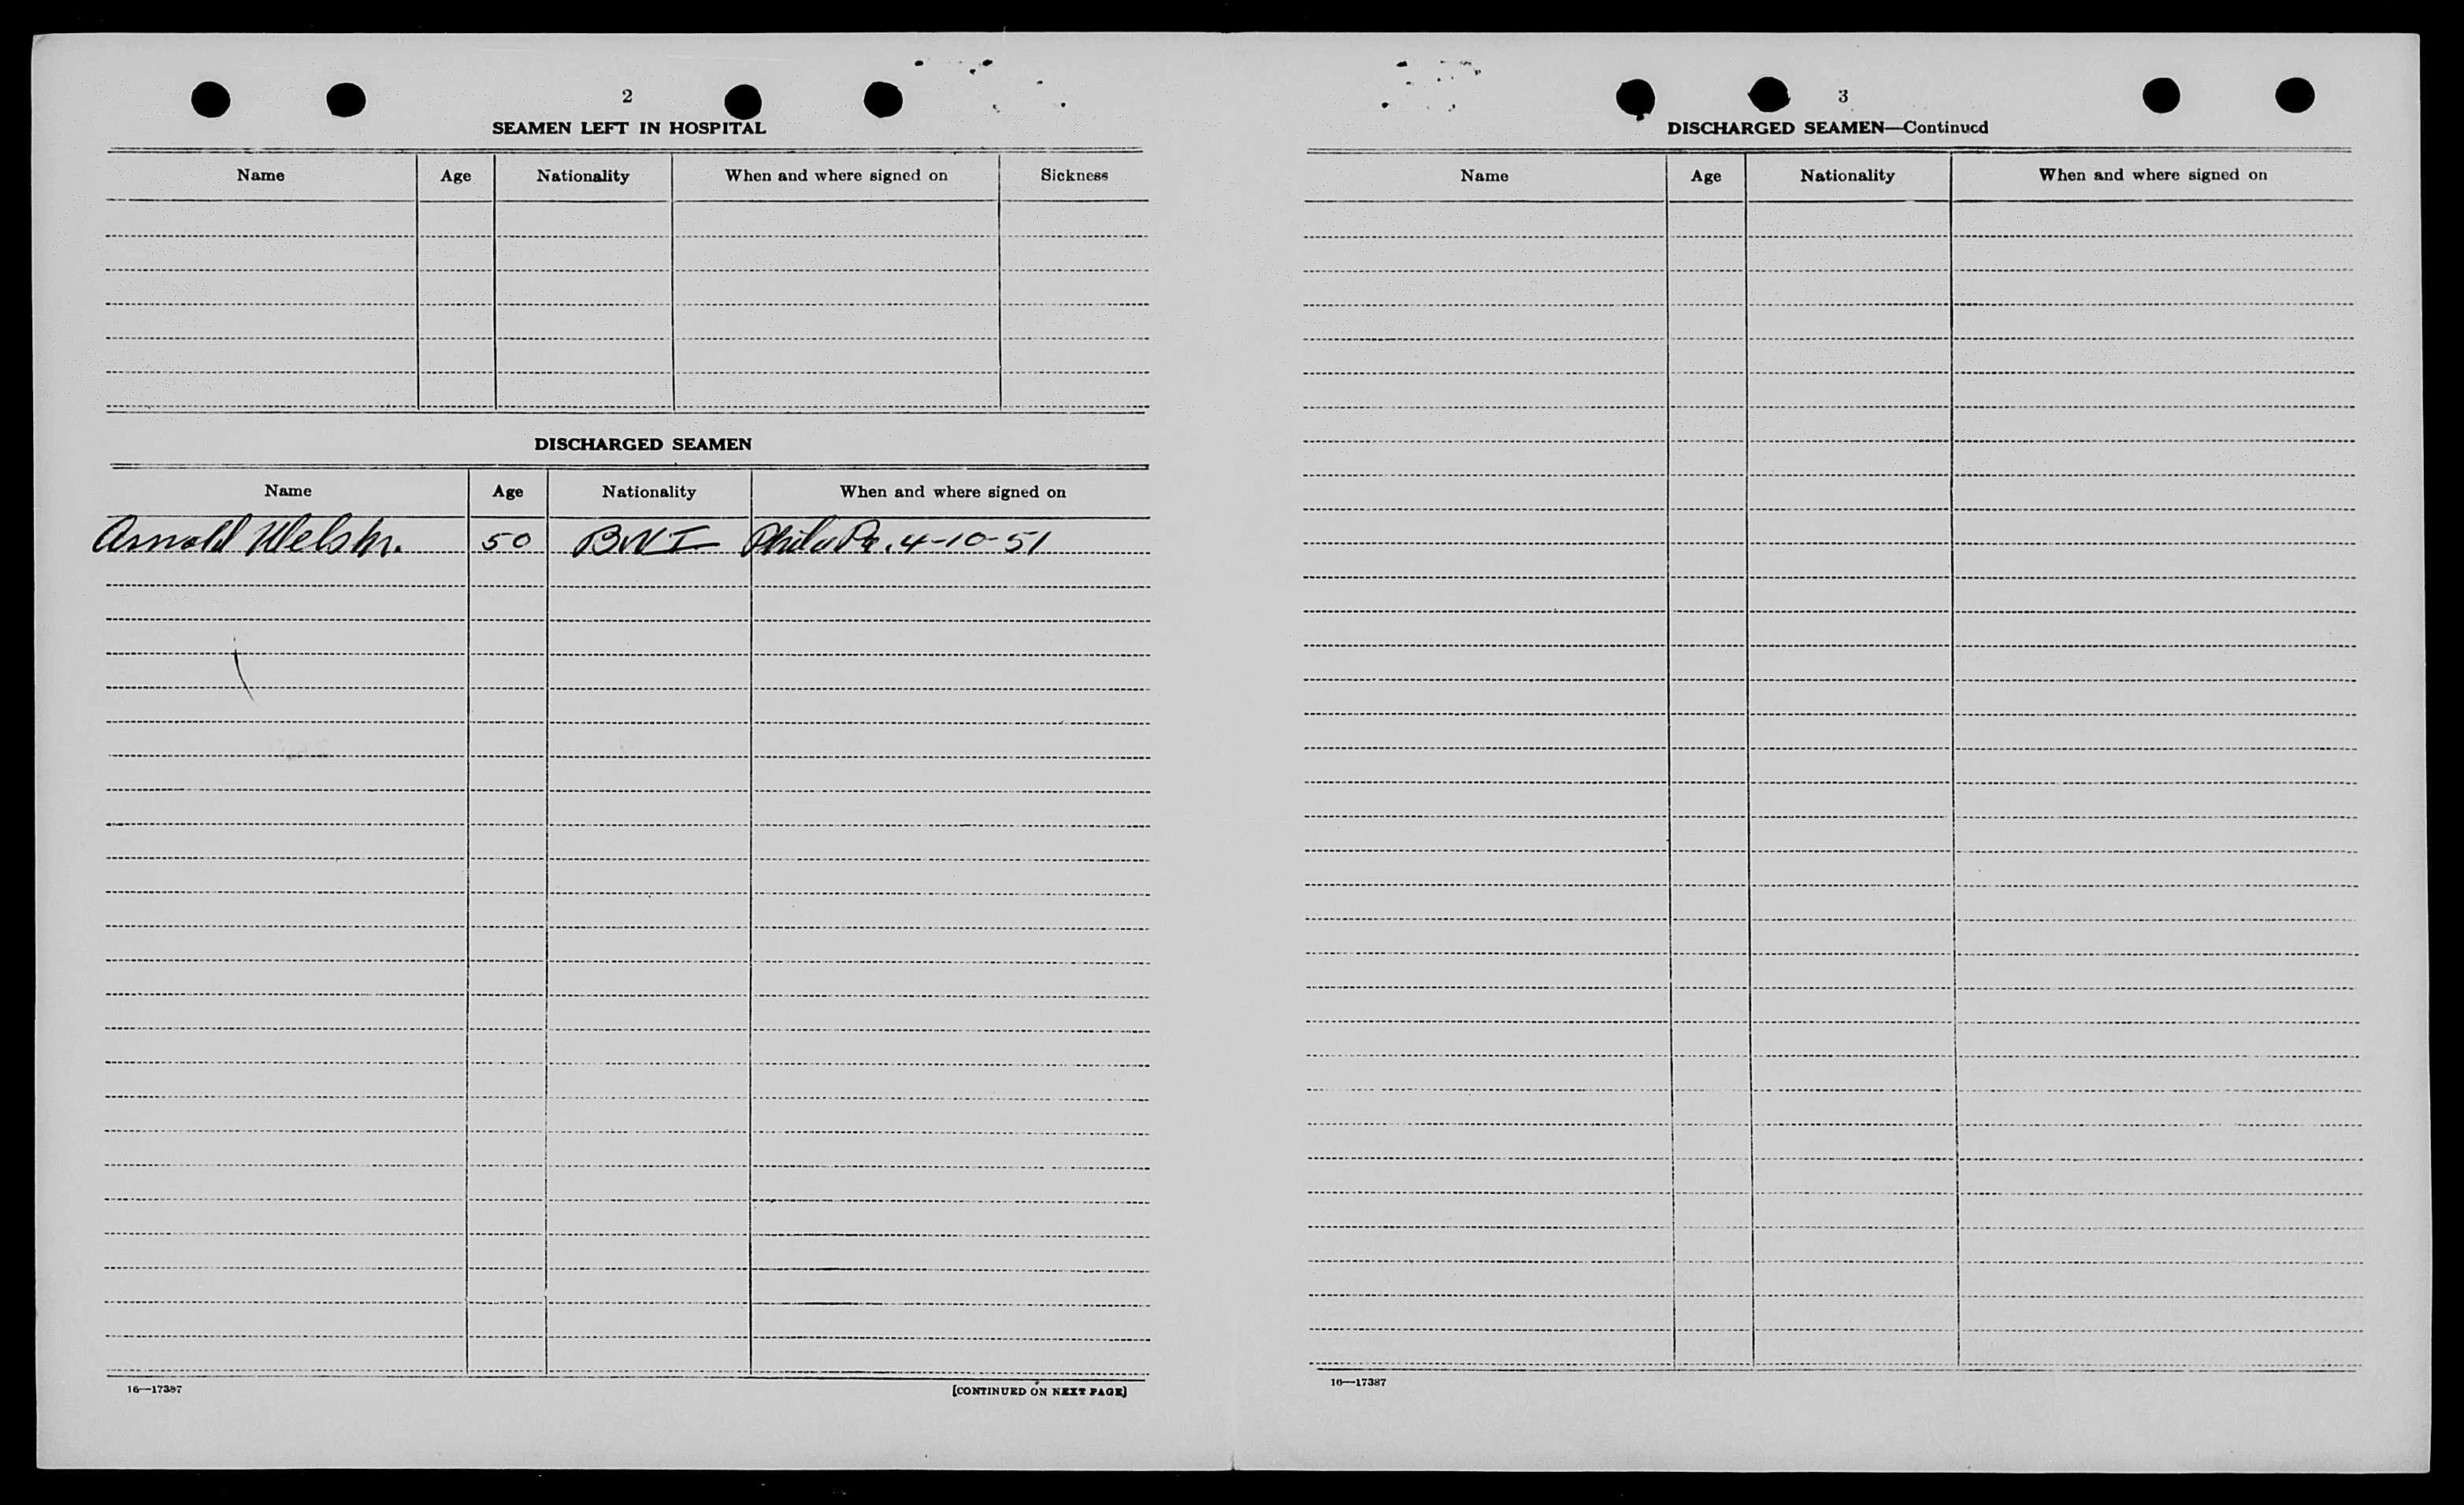 2
SEAMEN LEFT IN HOSPITAL
Name Age Nationality When and where signed on Sickness
DISCHARGED SEAMEN
Name Age Nationality When and where signed on
Arnold Welsh. 50 BWI Phila Pa. 4-10-51
16—17387
[CONTINUED ON NEXT PAGE]
3
DISCHARGED SEAMEN—Continued
Name Age Nationality When and where signed on
16—17387